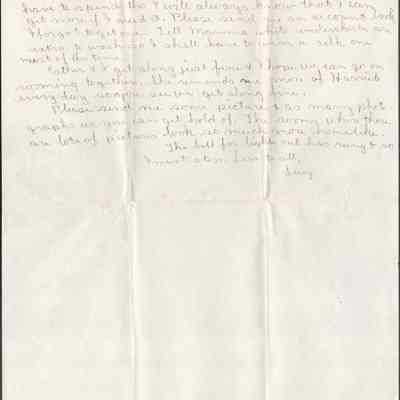 have to spend tho' I will always know that I can
get more if I need it. Please send me an account book
I forgot to get one. Tell Mamma white underskirts are
extra to wash so I shall have to wear a silk one
most of the time.
Esther & I get along just fine & I hope we can go on
rooming together. She reminds me more of Harriet
every day so you see we get along fine.
Please send me some pictures & as many phot
graphs as you can get hold of. The rooms where there
are lots of pictures look so much more homelike.
The bell for lights out has rung & so
I must stop. Love to all,
Lucy